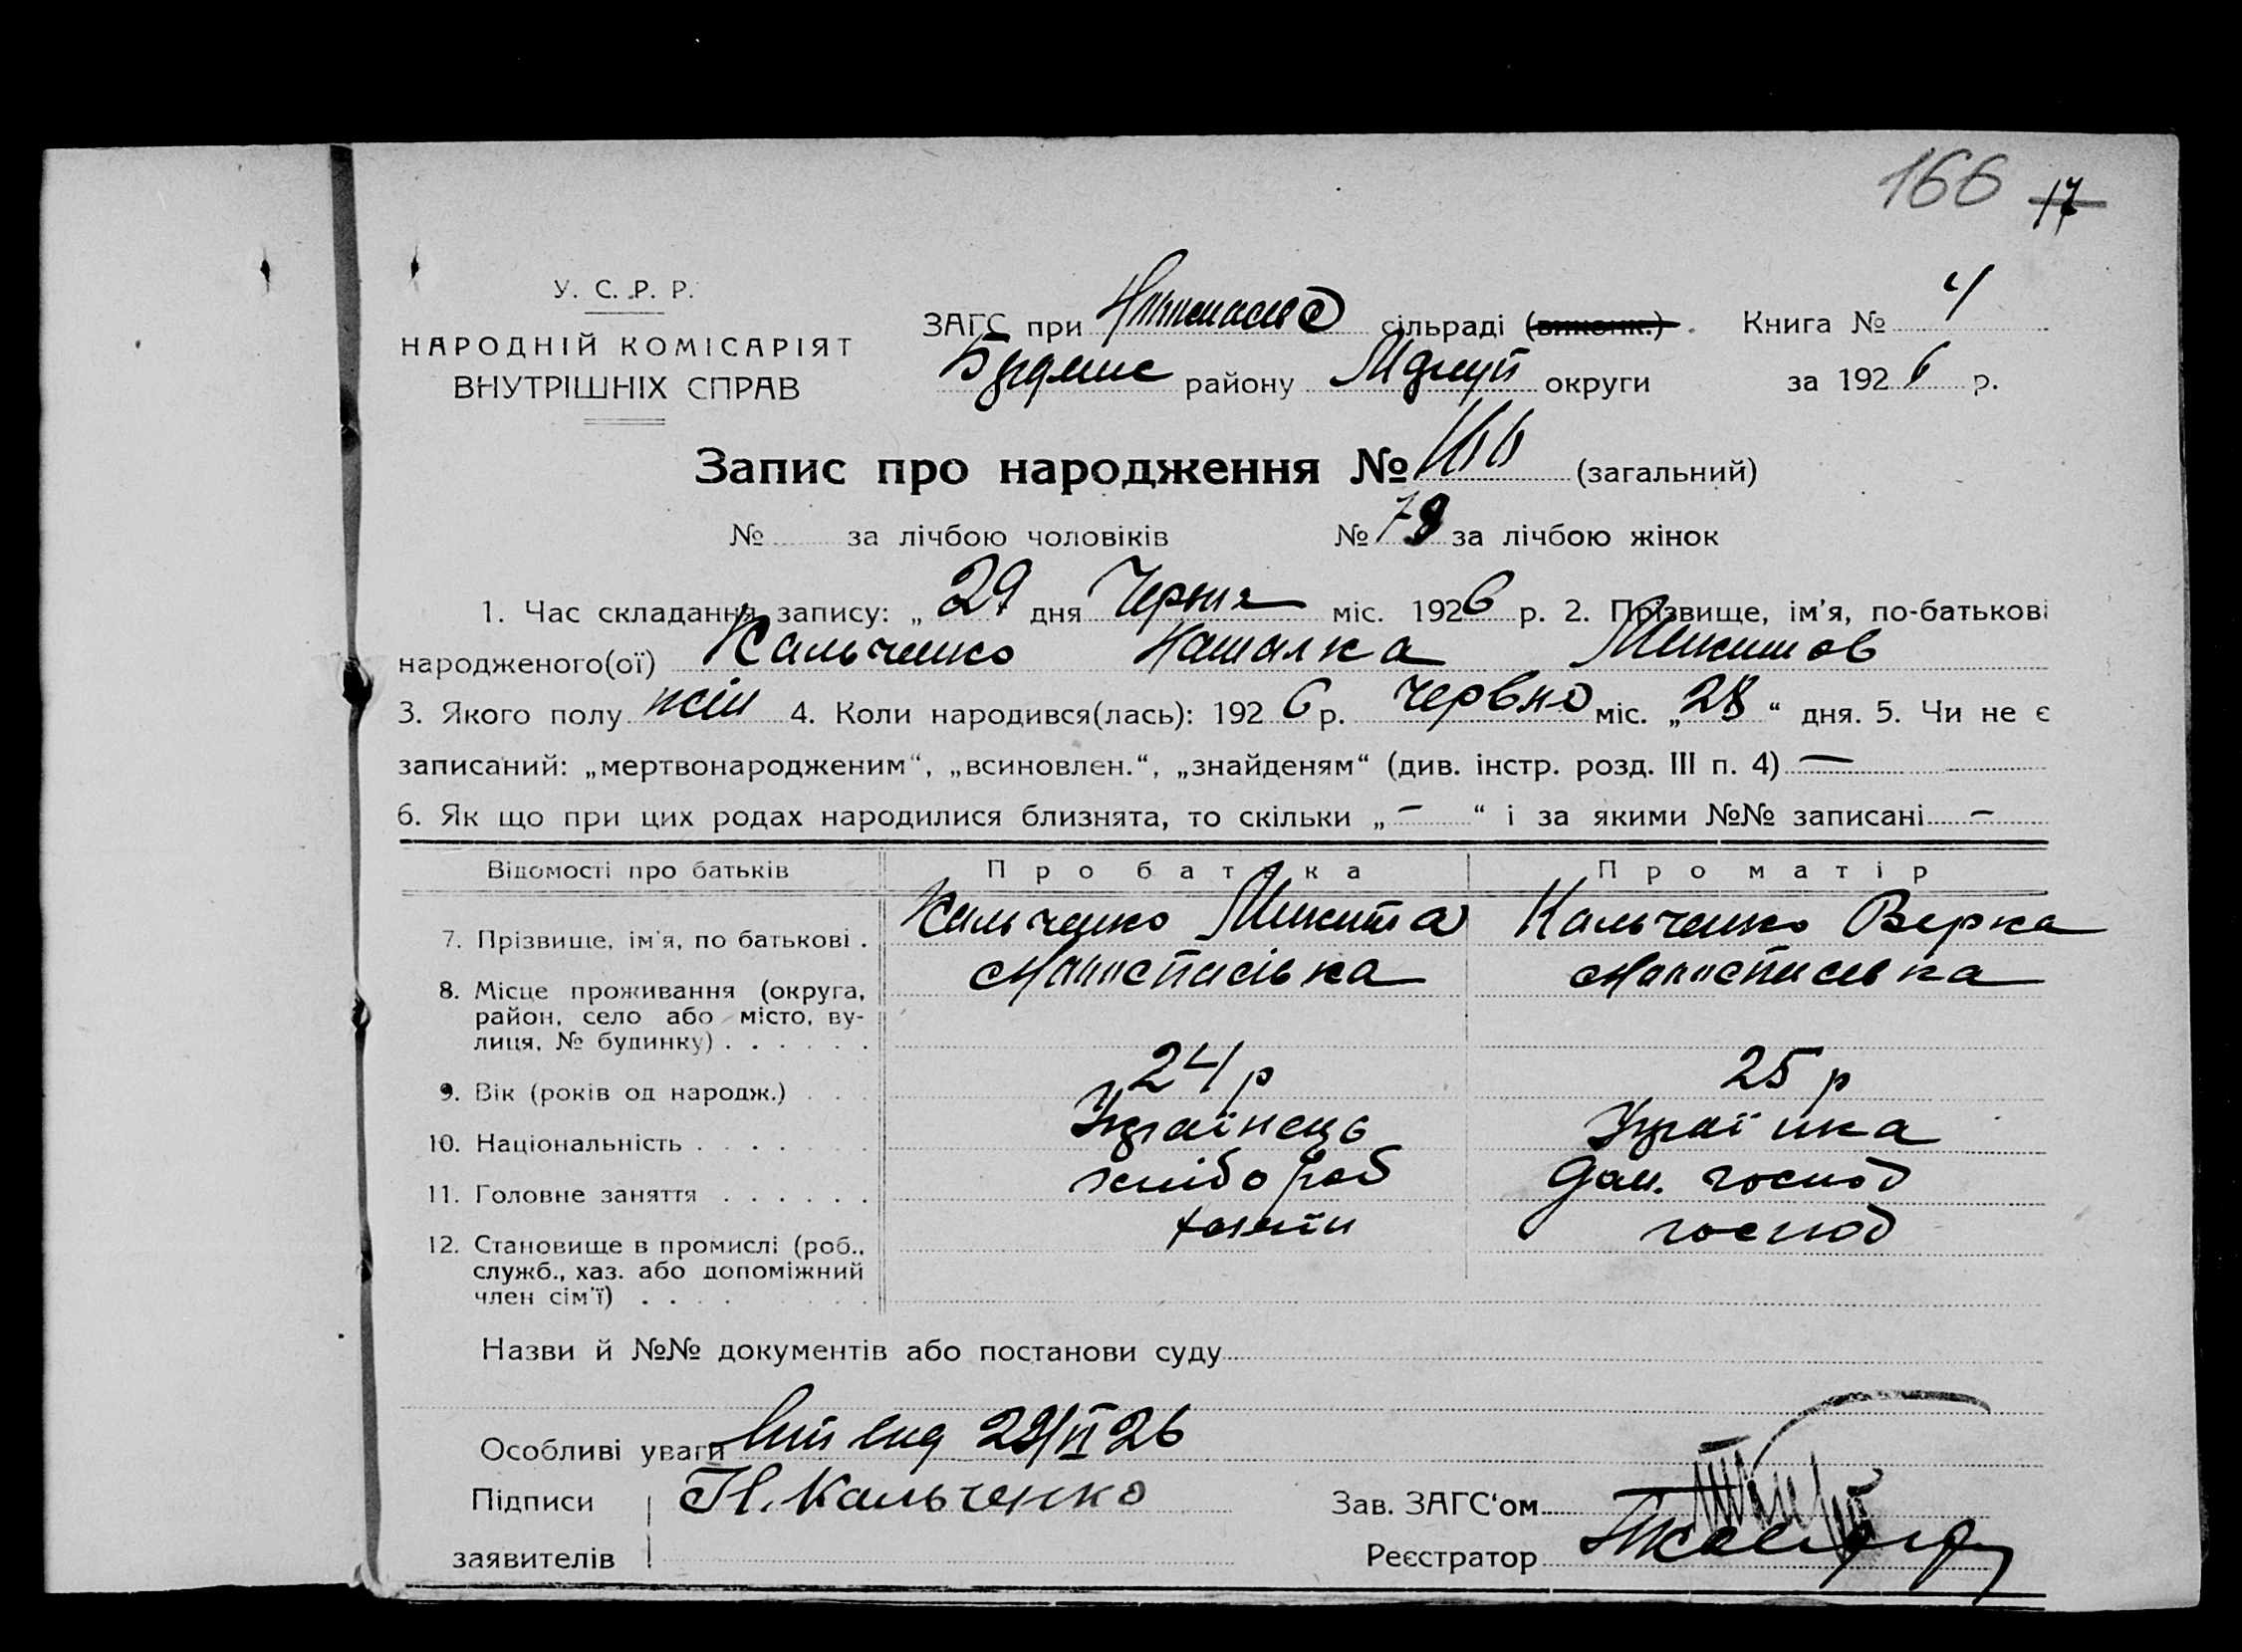 166 17
У. С. Р. Р.
НАРОДНІЙ КОМІСАРІЯТ
ВНУТРІШНІХ СПРАВ
ЗАГС при сільраді (виконк.) Книга № 4
району округи за 1926 р.
Запис про народження № 166 (загальний)
№ за лічбою чоловіків № 78 за лічбою жінок
1. Час складання запису: „29 дня Черня міс. 1926 р. 2. Прізвище, ім'я, по-батькові
народженого(ої) Кальченко Наталка Микитов
3. Якого полу жін 4. Коли народився(лась): 1926 р. Червню міс. „28“ дня. 5. Чи не є
записаний: „мертвонародженим“, „всиновлен.“, „знайденям“ (див. інстр. розд. III п. 4) —
6. Як що при цих родах народилися близнята, то скільки „ - “ і за якими №№ записані -
Відомості про батьків Про батька Про матір
7. Прізвище, ім'я, по батькові . Кальченко Микита Кальченко Верка
8. Місце проживання (округа,
район, село або місто, ву-
лиця, № будинку) . . . . . .
9. Вік (років од народж.) . . . 24 р 25 р
10. Національність . . . . . . Українець Українка
11. Головне заняття . . . . . . хлібороб дом. господ
12. Становище в промислі (роб., господ
служб., хаз. або допоміжний
член сім'ї) . . . .
Назви й №№ документів або постанови суду
Особливі уваги 29/VI 26
Підписи Н. Кальченко Зав. ЗАГС'ом
заявителів Реєстратор